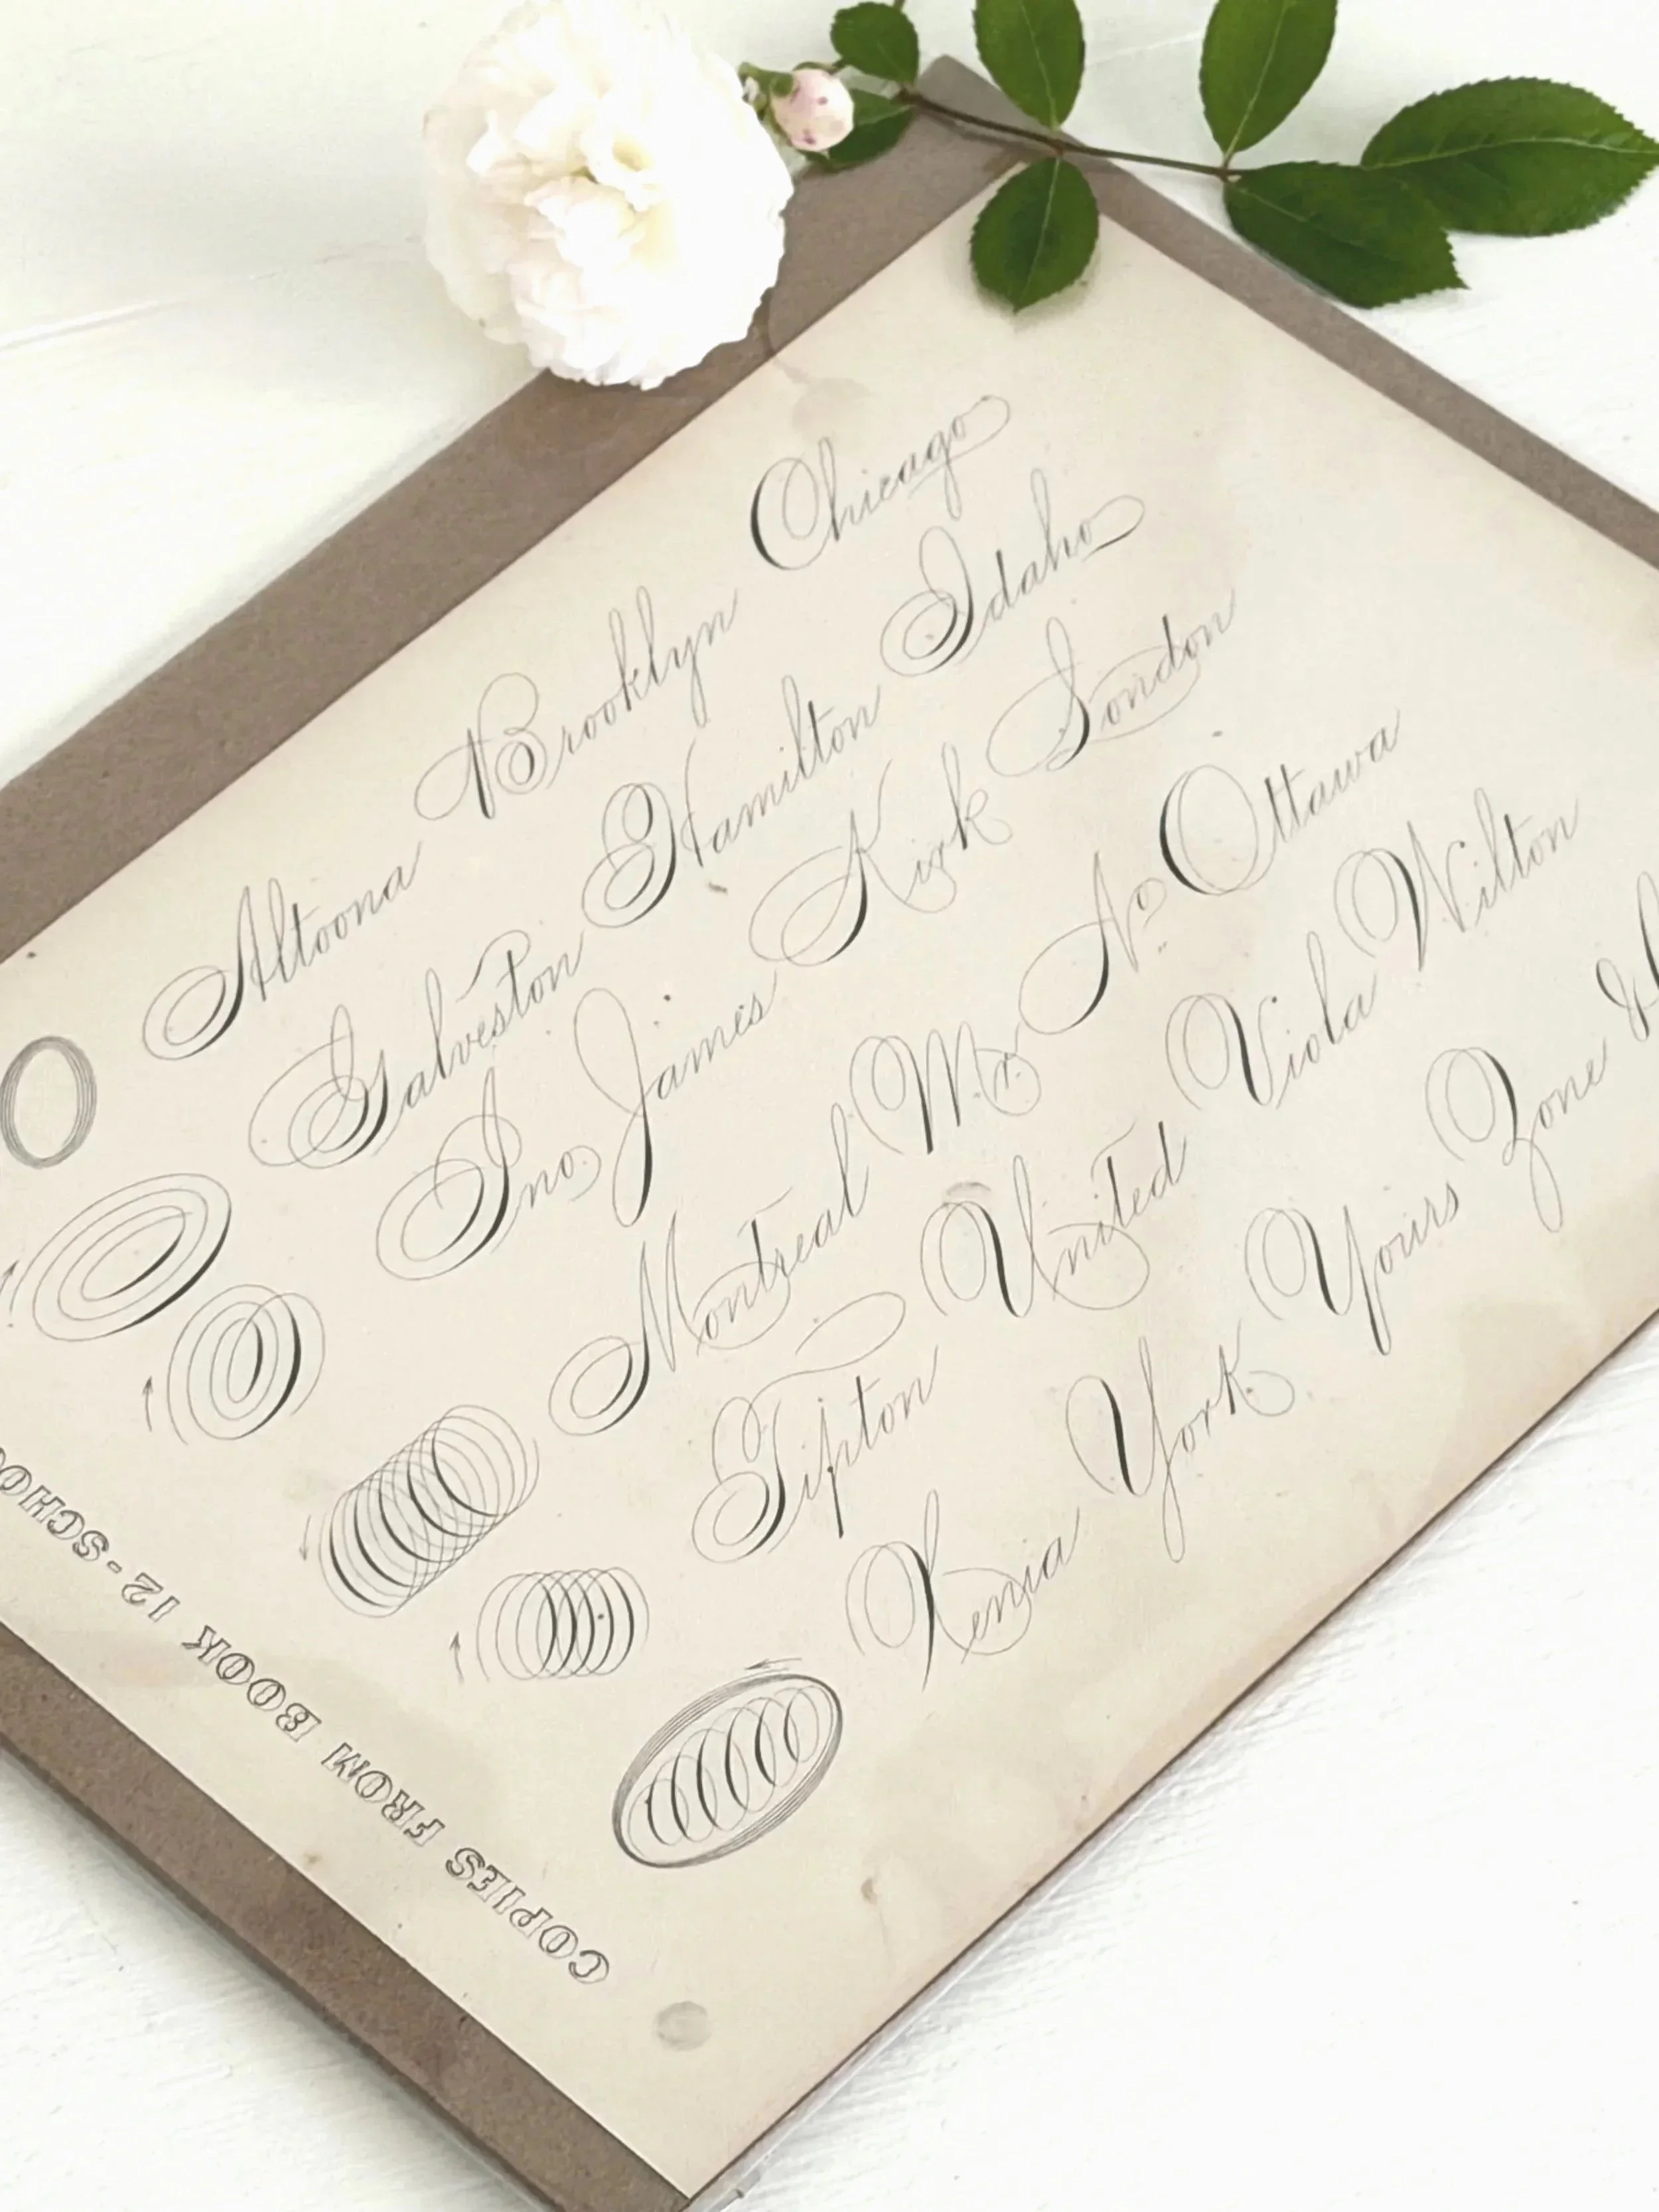 Altoona Brooklyn Chicago
Galveston Hamilton Idaho
Ino. James Kirk London
Montreal Mr. No. Ottawa
Tipton United Viola Wilton
Xenia York Yours Zone &
COPIES FROM BOOK 12-SCHO